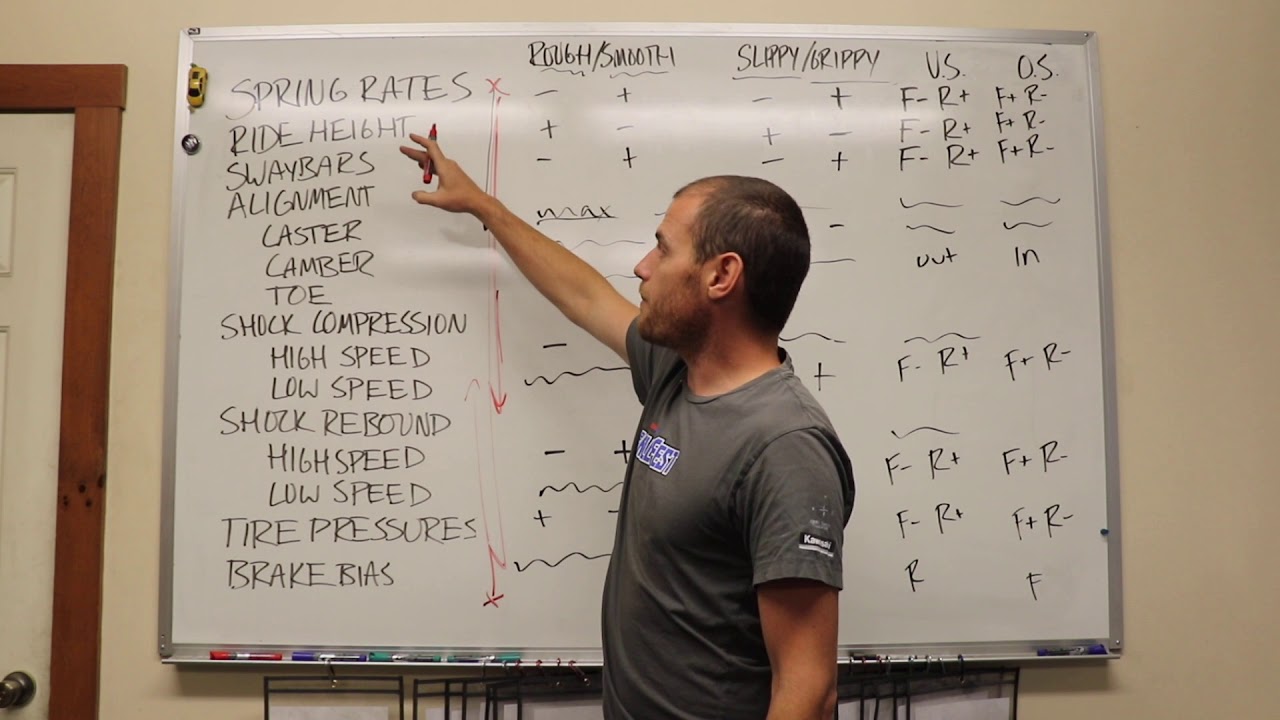 ROUGH/SMOOTH SLIPPY/GRIPPY U.S. O.S.
SPRING RATES x - + - + F- R+ F+ R-
RIDE HEIGHT + - + - F- R+ F+ R-
SWAYBARS - + - + F- R+ F+ R-
ALIGNMENT max
CASTER -
CAMBER out In
TOE
SHOCK COMPRESSION
HIGH SPEED - F- R+ F+ R-
LOW SPEED +
SHOCK REBOUND
HIGH SPEED - + F- R+ F+ R-
LOW SPEED
TIRE PRESSURES + - F- R+ F+ R-
BRAKE BIAS R F
x
Kawasaki